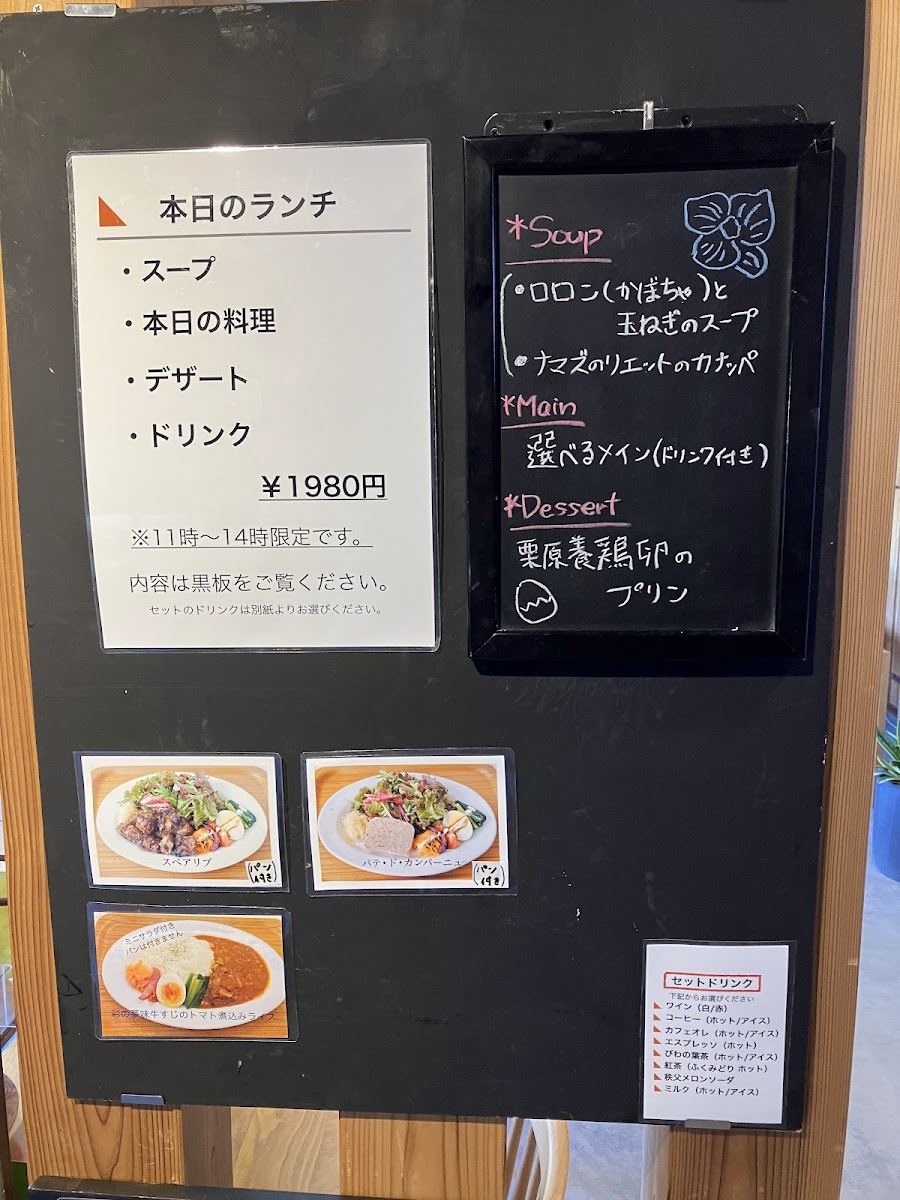 本日のランチ
・スープ
・本日の料理
・デザート
・ドリンク
¥1980円
※11時〜14時限定です。
内容は黒板をご覧ください。
セットのドリンクは別紙よりお選びください。
*Soup
・ロロン(かぼちゃ)と
玉ねぎのスープ
・ナマズのリエットのカナッペ
*Main
選べるメイン(ドリンク付き)
*Dessert
栗原養鶏卵の
プリン
スペアリブ
(パン
付き)
パテ・ド・カンパーニュ
(パン
付き)
ミニサラダ付き
パンは付きません
彩の夢味牛すじのトマト煮込みライス
セットドリンク
下記からお選びください
ワイン（白/赤）
コーヒー（ホット/アイス）
カフェオレ（ホット/アイス）
エスプレッソ（ホット）
びわの葉茶（ホット/アイス）
紅茶（ふくみどり ホット）
秩父メロンソーダ
ミルク（ホット/アイス）